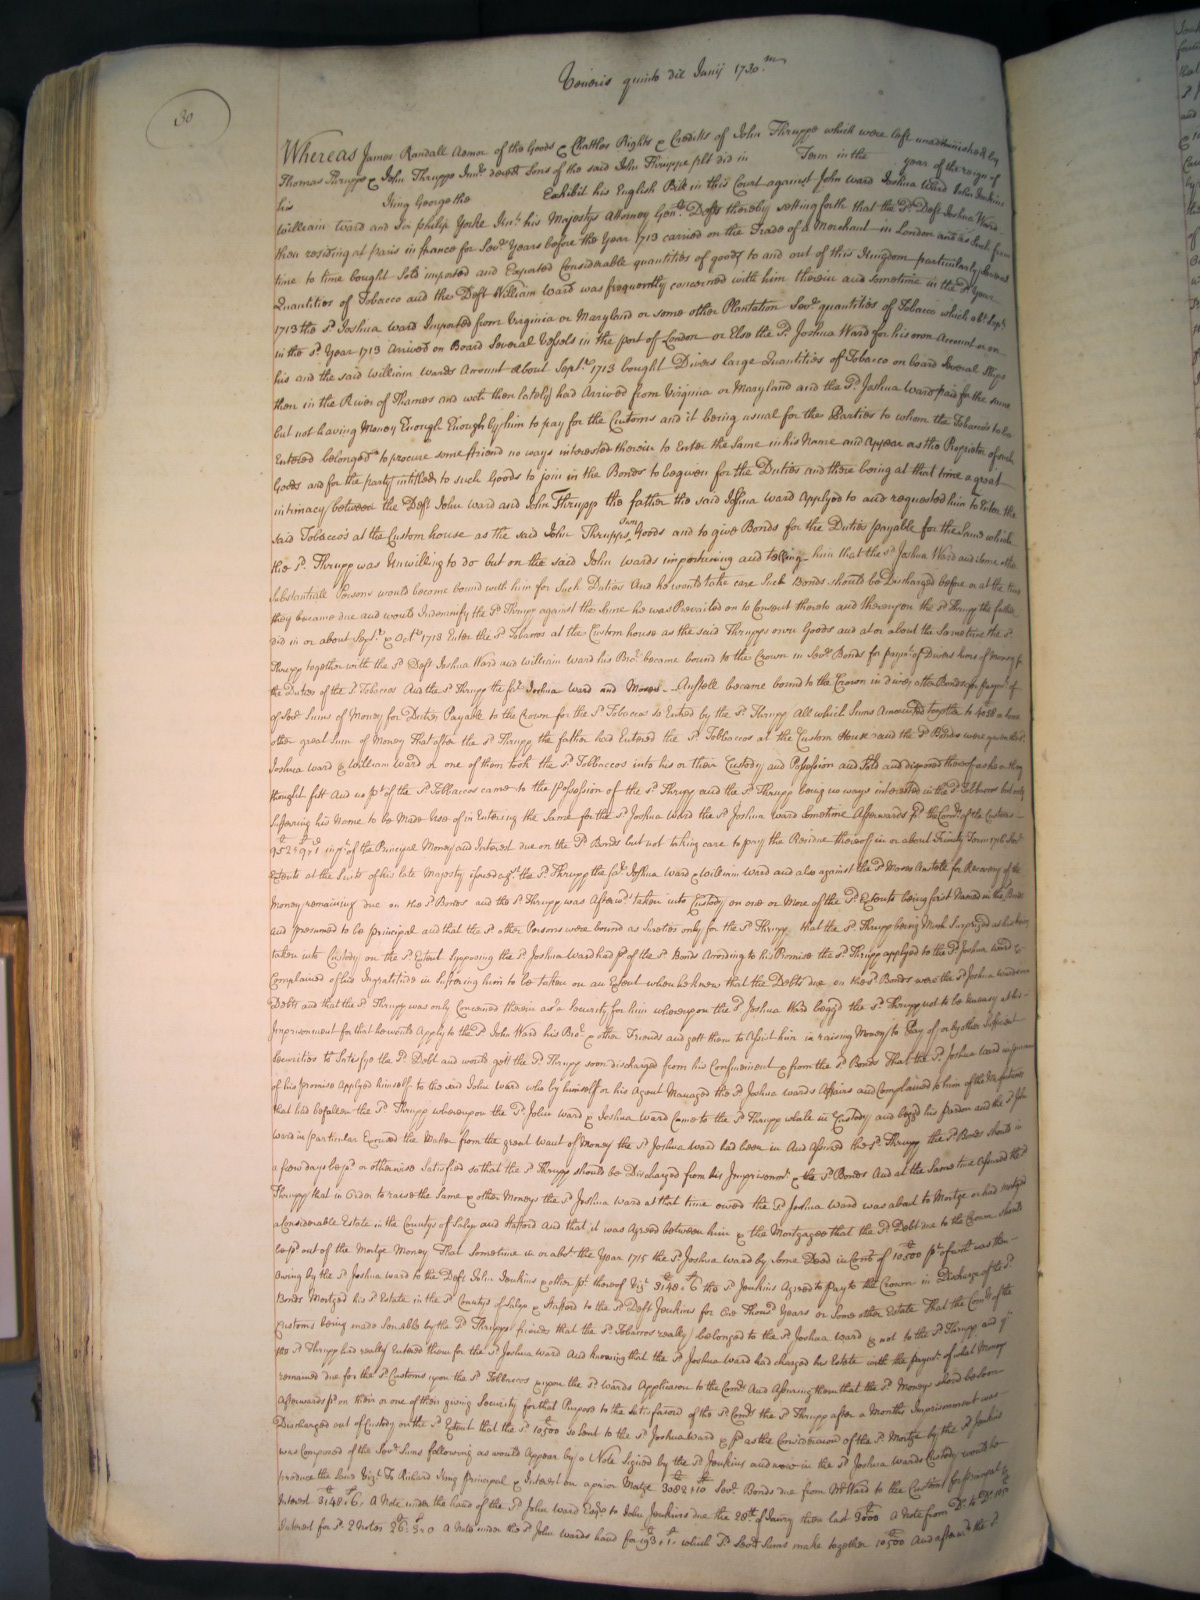 Veneris quinto die Junij 1730.
30
Whereas James Randall Admor of the Goods & Chattles Rights & Credits of John Thruppe which were left unadministred by
Thomas Thruppe & John Thruppe Junr. decēd Sons of the said John Thruppe plt did in Term in the year of the reign of
his King George the Exhibit his English Bill in this Court against John Ward Joshua Ward John Jenkins
William Ward and Sir Philip Yorke Knt. his Majestys Attorney Genll. Defts thereby setting forth that the sd. Deft Joshua Ward
then residing at paris in france for Sevll. Years before the Year 1713 carried on the Trade of a Merchant in London and as such from
time to time bought Sold imported and Exported Considerable quantities of goods to and out of this Kingdom particularly several
Quantities of Tobacco and the Deft William Ward was frequently concerned with him therein and sometime in the sd. Year
1713 the sd. Joshua Ward Imported from Virginia or Maryland or some other Plantation Sevll. quantities of Tobacco which abt. Sept.
in the sd. Year 1713 arrived on Board Several Vessels in the port of London or Else the sd. Joshua Ward for his own Account or on
his and the said William Wards Account about Sept. 1713 bought Divers large Quantities of Tobacco on board Several Ships
then in the River of Thames and wch then lately had Arrived from Virginia or Maryland and the sd. Joshua Ward paid for the same
but not having Money Enough Enough by him to pay for the Customs and it being usual for the Parties to whom the Tobacco's to be
Entered belonged to procure some friend no ways interested therein to Enter the Same in his Name and Appear as the Propriator of such
Goods and for the party intitled to such Goods to join in the Bonds to be given for the Duties and there being at that time a great
intimacy between the Deft John Ward and John Thrupp the father the said Joshua Ward Applyed to and requested him to Enter the
said Tobacco's at the Custom house as the said John Thrupps own Goods and to give Bonds for the Duties payable for the Same which
the sd. Thrupp was Unwilling to do but on the said John Wards importuning and telling him that the sd Joshua Ward and some other
Substantiall Persons would become bound with him for Such Duties And he would take care Such Bonds should be Discharged before or at the time
they became due and would Indemnify the sd. Thrupp against the Same he was Prevailed on to Consent thereto and thereupon the sd Thrupp the father
did in or about Sept. & Octr. 1713 Enter the sd Tobaccos at the Custom house as the said Thrupps own Goods and at or about the Same time the sd.
Thrupp together with the sd Deft Joshua Ward and William Ward his Bror. became bound to the Crown in Sevll Bonds for paymt. of Divers Sums of money for
the Duties of the sd Tobaccos And the sd Thrupp the sd. Joshua Ward and Moses Anstell became bound to the Crown in divers other Bonds for paymt. of
of Sevll Sums of Money for Duties Payable to the Crown for the sd Tobaccos so Entred by the sd. Thrupp All which Sums Amounted together to
other great Sum of Money That after the sd Thrupp the father had Entered the sd. Tobbaccos at the Custom House and the sd Bonds were given the sd.
Joshua Ward & William Ward or one of them took the sd Tobbaccos into his or their Custody and Possession and Sold and disposed thereof as he or they
thought fitt And no pt of the sd. Tobbaccos came to the Possession of the sd Thrupp and the sd Thrupp being no ways interested in the sd Tobbaccos but only
Suffering his Name to be Made Use of in Entering the Same for the sd Joshua Ward the sd Joshua ward Sometime Afterwards pd the Comrs. of the Customs
in pt. of the Principal Money and Interest due on the sd Bonds but not taking care to pay the Residue thereof in or about Trinity Term
Extents at the Suits of his late Majesty issued agt. the sd Thrupp the sd. Joshua Ward & William Ward and also against the sd Moses for Recovery of the
money remaining due on the sd Bonds and the sd. Thrupp was Afterwds taken into Custody on one or More of the sd. Extents being first Named in the Bonds
and presumed to be principal and that the sd other Persons were bound as Sureties only for the sd Thrupp that the sd Thrupp being Much Surprized at his being
taken into Custody on the sd. Extent Supposing the sd Joshua Ward had pd of the sd Bonds According to his Promise the sd Thrupp applyed to the sd Joshua Ward &
Complained of his Ingratitude in Suffering him to be taken on an Extent when he knew that the Debts due on the sd Bonds were the sd Joshua wards own
Debts and that the sd Thrupp was only Concerned therein as a Security for him whereupon the sd Joshua Ward begg'd the sd. Thrupp not to be Uneasy at his
Imprisonment for that he would Apply to the sd John Ward his Bror. & other Friends and gett them to Assist him in raising Money to Pay of or by other Sufficient
Securities to Satisfye the sd Debt and would gett the sd. Thrupp soon discharged from his Confinement & from the sd Bonds That the sd. Joshua Ward in pursuance
of his promise Applyed himself to the said John Ward who by himself or his Agent Managed the sd Joshua wards Affairs and Complained to him of the Misfortune
that had befallen the sd Thrupp whereupon the sd. John Ward & Joshua Ward Came to the sd Thrupp while in Custody and begg'd his pardon and the sd John
Ward in particular Excused the Matter from the great Want of Money the sd Joshua Ward had been in And Assured the sd. Thrupp the sd Bonds should in
a few days be pd or otherwise Satisfied so that the sd Thrupp should be Discharged from his Imprisonmt & the sd Bonds And at the Same time Assured the sd
Thrupp that in Order to raise the Same & other Moneys the sd Joshua Ward at that time owed the sd Joshua Ward was about to Mortge or had mortged
a Considerable Estate in the Countys of Salop and Stafford And that it was Agreed between him & the Mortgagee that the sd Debt due to the Crown should
be pd out of the Mortge Money That Sometime in or abt. the Year 1715 the sd Joshua Ward by Some Deed in Consn of 10500 pt of wch was then
Owing by the sd Joshua Ward to the Deft John Jenkins & other pt thereof Vizt 3148:6 the sd Jenkins Agreed to Pay to the Crown in Discharge of the sd.
Bonds Mortged his sd Estate in the sd Countys of Salop & Stafford to the sd Deft Jenkins for One Thousd Years or Some other Estate That the Comrs of the
Customs being made Sensible by the sd Thrupps friends that the sd. Tobaccos really belonged to the sd Joshua Ward & not to the sd Thrupp and yt
the sd Thrupp had really Entered them for the sd Joshua Ward And knowing that the sd Joshua Ward had charged his Estate with the paymt. of what Money
remained due for the sd. Customs upon the sd Tobbaccos & upon the sd. Wards Application to the Comrs And Assuring them that the sd Moneys should be soon
Afterwards pd on their or one of their giving Security for that Purpose to the Satisfaccon of the sd Comrs the sd Thrupp after a Months Imprisonment was
Discharged out of Custody on the sd Extent that the sd 10500 so Lent to the sd Joshua Ward & pd as the Consideracon of the sd Mortge by the sd Jenkins
was Composed of the Sevll Sums following as would Appear by a Note Signed by the sd Jenkins and now in the sd Joshua Wards Custody would he
produce the Same Vizt. To Richard King Principal & Interest on a prior Mortge 3082:10 Sevll Bonds due from Mr Ward to the Custom for principal &
Interest 3148:6: A Note under the hand of the sd John Ward Esqr. to John Jenkins due the 28th of Janry then last 3000 A Note from Do.
Interest for sd. 2 Notes A Note under the sd John Wards hand for which sd Sevll Sums make together 10500 And afterwd the sd